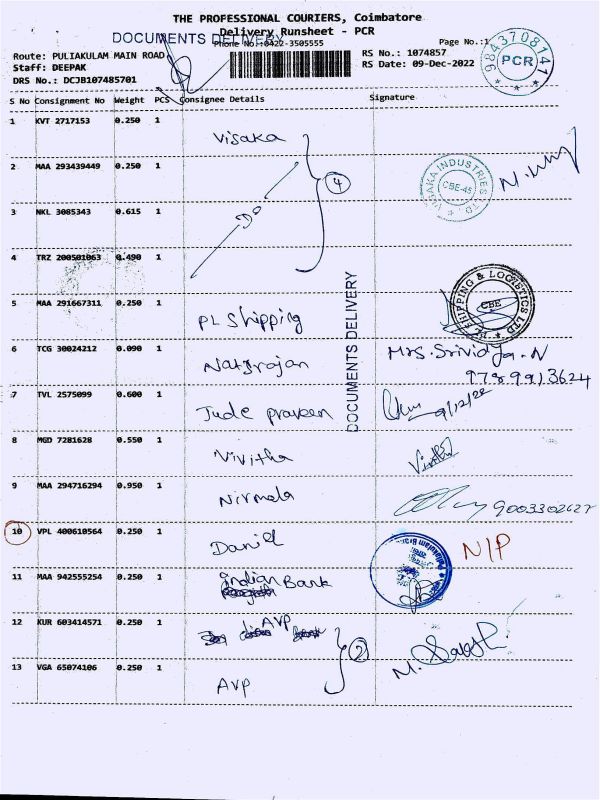 THE PROFESSIONAL COURIERS, Coimbatore
Delivery Runsheet - PCR
DOCUMENTS DELIVERY
Phone No :0422-3505555
Page No.:1
Route: PULIAKULAM MAIN ROAD
RS No.: 1074857
Staff: DEEPAK
RS Date: 09-Dec-2022
DRS No.: DCJB107485701
9843708141
PCR
S No Consignment No Weight PCS Consignee Details Signature
1 KVT 2717153 0.250 1 Visaka
2 MAA 293439449 0.250 1
VISAKA INDUSTRIES LTD.
CBE-45
4
3 NKL 3085343 0.615 1 Do
4 TRZ 200501063 0.490 1
DOCUMENTS DELIVERY
5 MAA 291667311 0.250 1 PL Shipping
PL SHIPPING & LOGISTICS LTD
CBE
6 TCG 30024212 0.090 1 Natarajan Mrs. Srividya.N
9789913624
7 TVL 2575099 0.600 1 Jude praveen 9/12/22
8 MGD 7281628 0.550 1 Vivitha
9 MAA 294716294 0.950 1 Nirmala 9003302627
10 VPL 400610564 0.250 1 Daniel N/P
11 MAA 942555254 0.250 1 Indian Bank
12 KUR 603414571 0.250 1 AVP
2
13 VGA 65074106 0.250 1 AVP